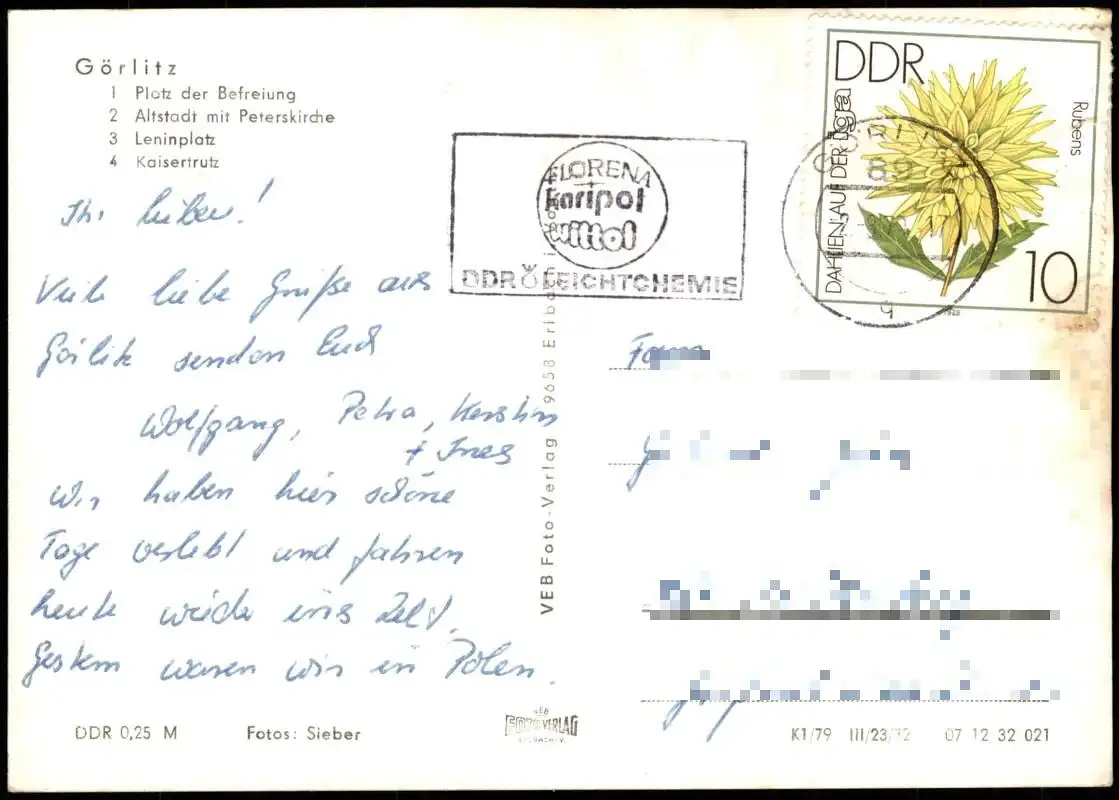 Görlitz
1 Platz der Befreiung
2 Altstadt mit Peterskirche
3 Leninplatz
4 Kaisertrutz
Ihr lieben!
Viele liebe Grüße aus
Görlitz senden Euch
Wolfgang, Petra, Kerstin
+ Ines
Wir haben hier schöne
Tage verlebt und fahren
heute wieder ins Zelt.
Gestern waren wir in Polen.
DDR 0,25 M
Fotos: Sieber
VEB Foto-Verlag 9658 Erlbach
FLORENA
Karipol
wittol
DDR LEICHTCHEMIE
DDR
DAHLIEN AUF DER iga
Rubens
10
1979
89
q
VEB
FOTO VERLAG
ERLBACH V.
K1/79 III/23/12 07 12 32 021